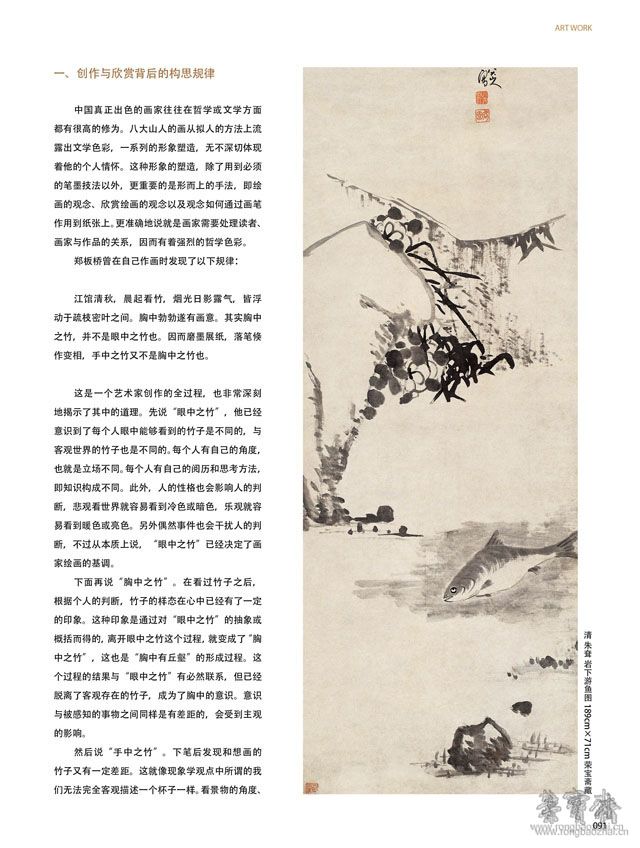 ART WORK
一、创作与欣赏背后的构思规律
中国真正出色的画家往往在哲学或文学方面
都有很高的修为。八大山人的画从拟人的方法上流
露出文学色彩，一系列的形象塑造，无不深切体现
着他的个人情怀。这种形象的塑造，除了用到必须
的笔墨技法以外，更重要的是形而上的手法，即绘
画的观念、欣赏绘画的观念以及观念如何通过画笔
作用到纸张上。更准确地说就是画家需要处理读者、
画家与作品的关系，因而有着强烈的哲学色彩。
郑板桥曾在自己作画时发现了以下规律：
江馆清秋，晨起看竹，烟光日影露气，皆浮
动于疏枝密叶之间。胸中勃勃遂有画意。其实胸中
之竹，并不是眼中之竹也。因而磨墨展纸，落笔倏
作变相，手中之竹又不是胸中之竹也。
这是一个艺术家创作的全过程，也非常深刻
地揭示了其中的道理。先说“眼中之竹”，他已经
意识到了每个人眼中能够看到的竹子是不同的，与
客观世界的竹子也是不同的。每个人有自己的角度，
也就是立场不同。每个人有自己的阅历和思考方法，
即知识构成不同。此外，人的性格也会影响人的判
断，悲观看世界就容易看到冷色或暗色，乐观就容
易看到暖色或亮色。另外偶然事件也会干扰人的判
断，不过从本质上说，“眼中之竹”已经决定了画
家绘画的基调。
下面再说“胸中之竹”。在看过竹子之后，
根据个人的判断，竹子的样态在心中已经有了一定
的印象。这种印象是通过对“眼中之竹”的抽象或
概括而得的，离开眼中之竹这个过程，就变成了“胸
中之竹”，这也是“胸中有丘壑”的形成过程。这
个过程的结果与“眼中之竹”有必然联系，但已经
脱离了客观存在的竹子，成为了胸中的意识。意识
与被感知的事物之间同样是有差距的，会受到主观
的影响。
然后说“手中之竹”。下笔后发现和想画的
竹子又有一定差距。这就像现象学观点中所谓的我
们无法完全客观描述一个杯子一样。看景物的角度、
清 朱耷 岩下游鱼图 189cm×71cm 荣宝斋藏
091
荣宝斋
www.rongbaozhai.cn